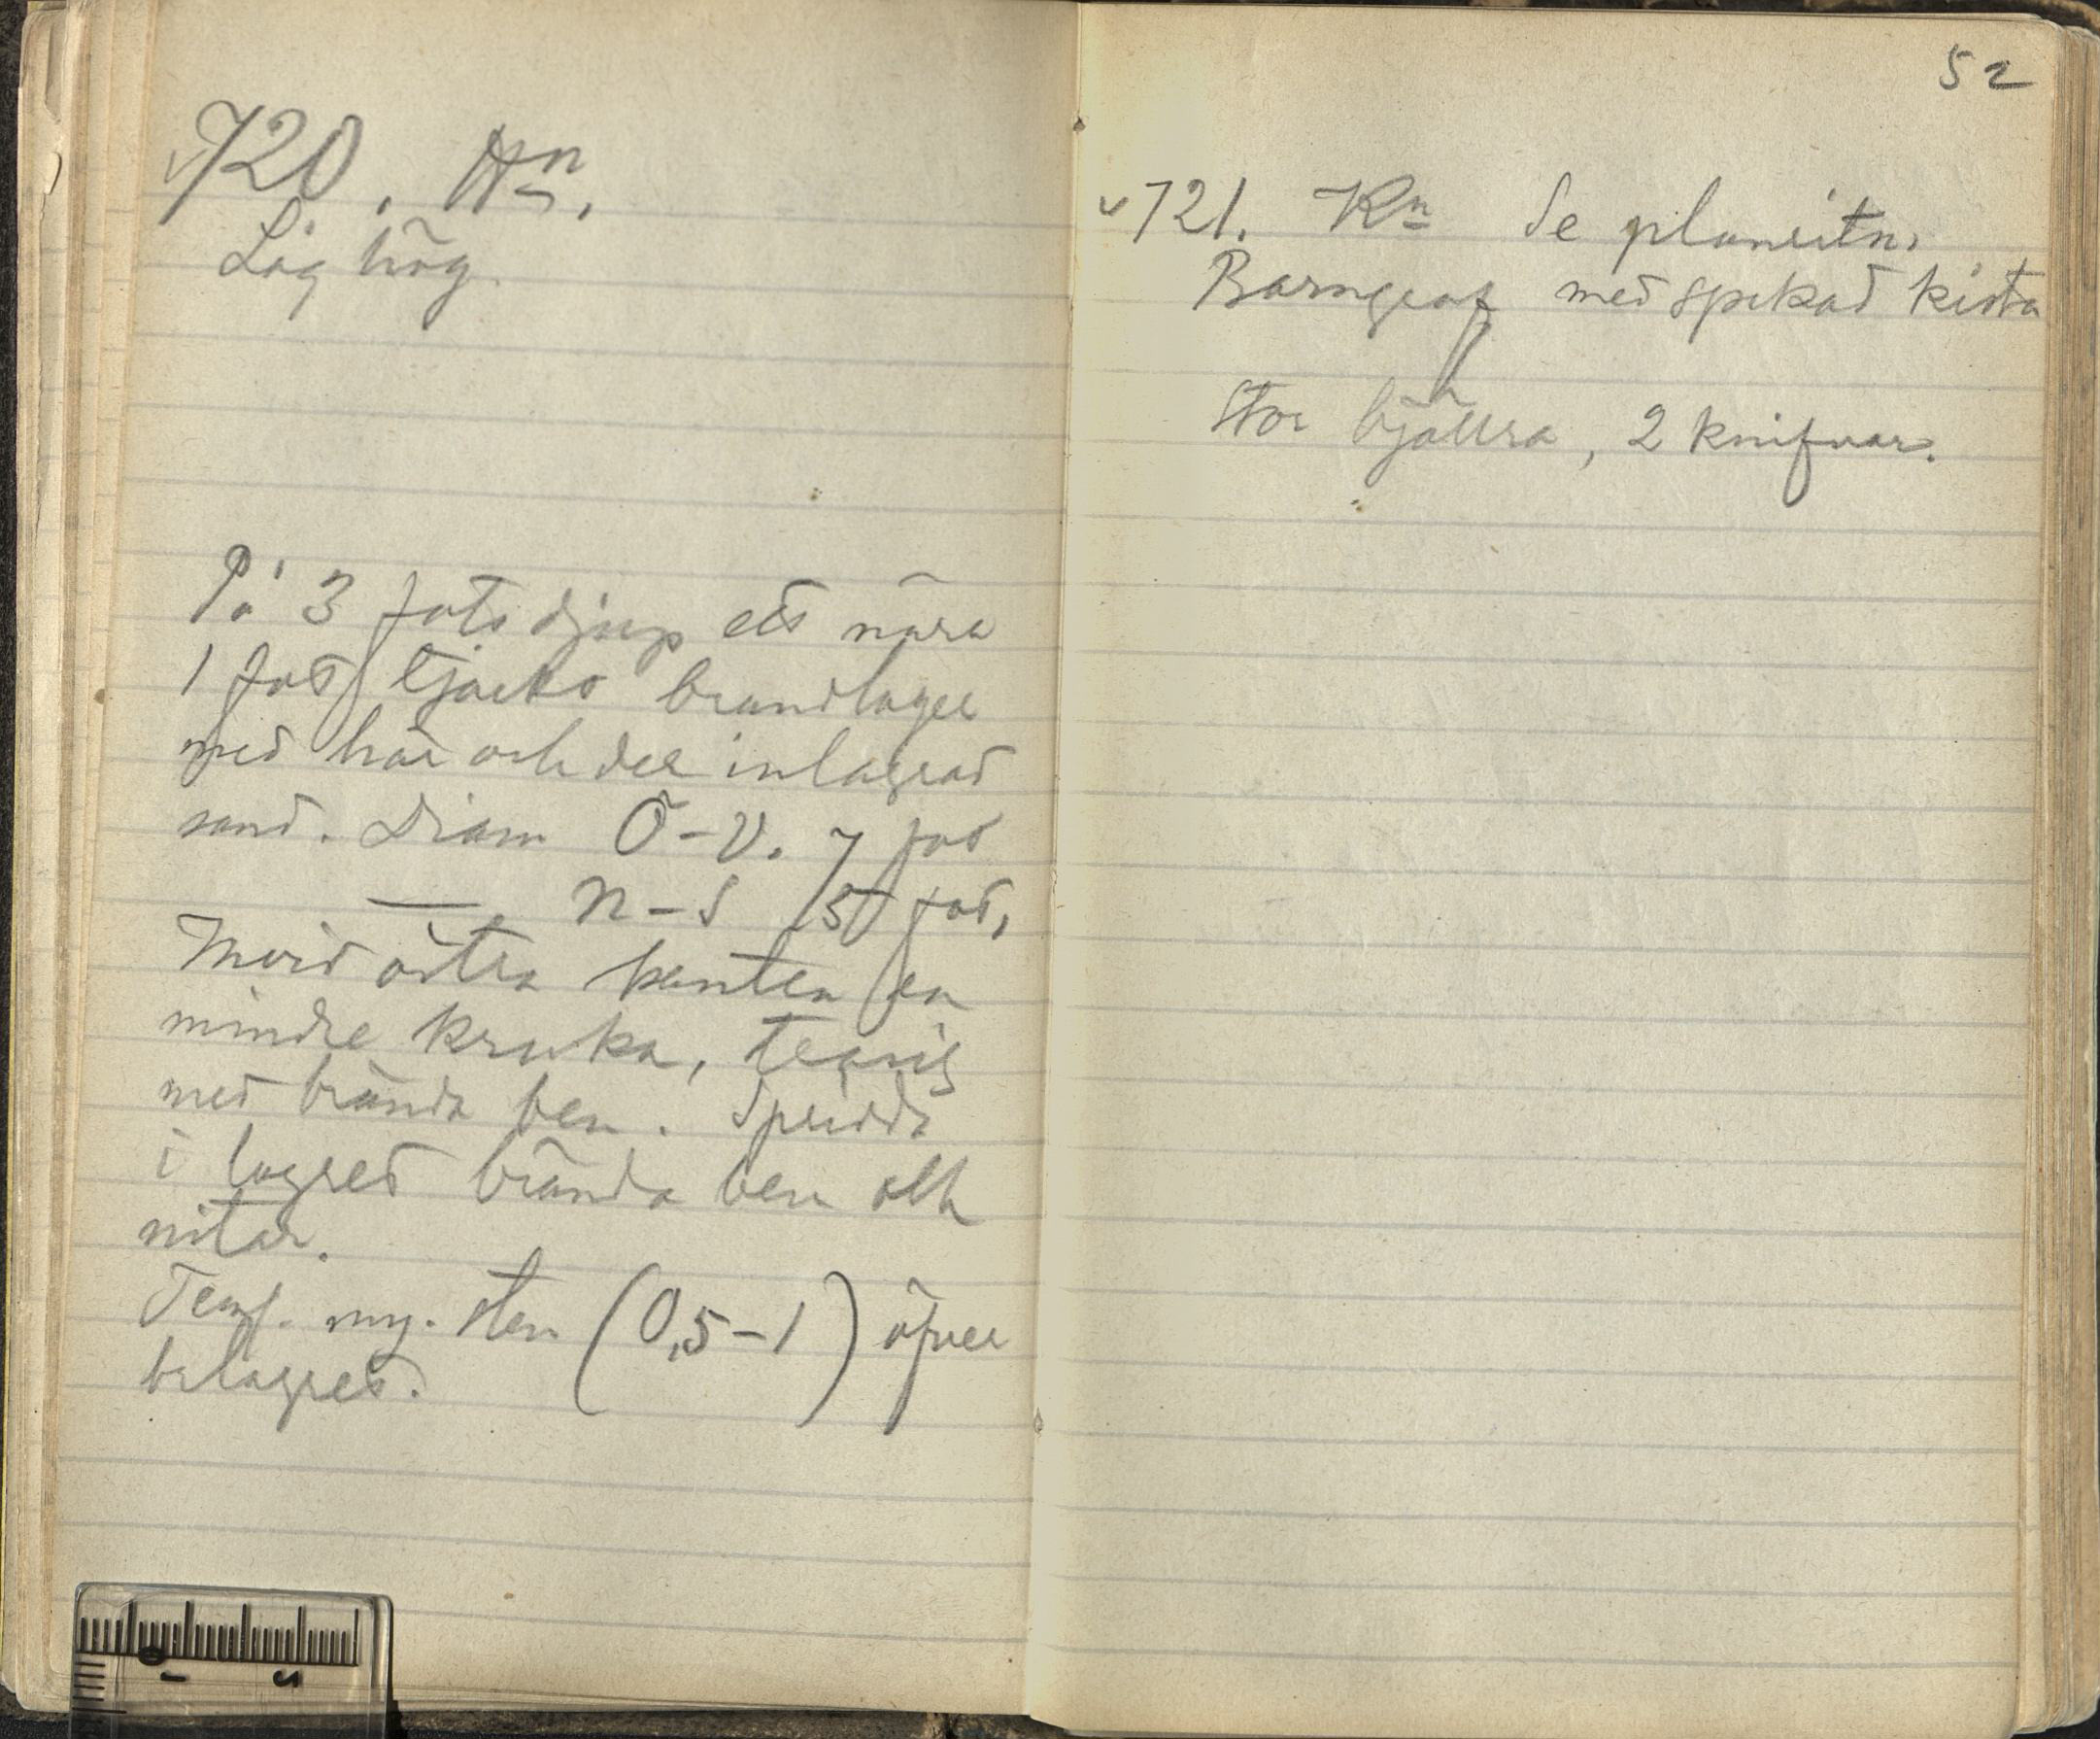 720. Hn.
Låg hög.
På 3 fots djup ett nära
1 fot tjockt brandlager
med här och der inlagrad
sand. Diam Ö-V. 7 fot
— N-S 5 fot,
Invid östra kanten en
mindre kruka,
med brända ben. Spridda
i lagret brända ben och
nitar.
my. sten (0,5-1) öfver
52
721. Kn Se planritn.
Barngraf med spikad kista
Stor bjällra, 2 knifvar.
0 1 2